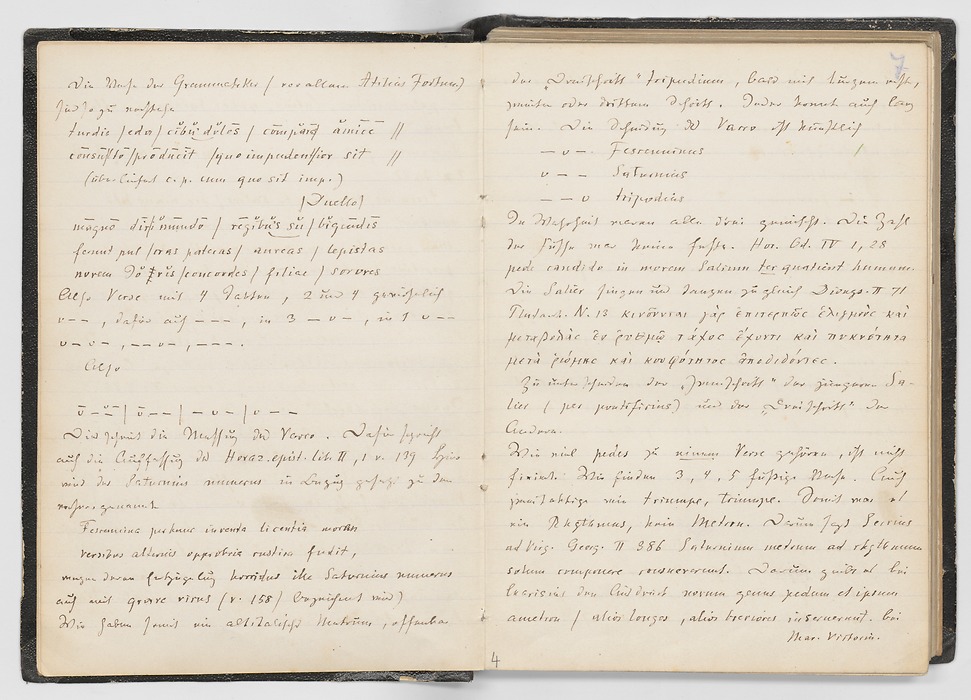 Die Verse der Grammatiker / vor allem Atilius Fortun)
sind so zu verstehen
turdis / edacibus dolos / comparas amice //
consulto / producit / quo impudentior sit //
(überliefert c. p. eum quo sit imp.)
/Duello/
magno dirimundo / regibus su/bigundis
ferunt pul/cras pateras / aureas / lepistas
novem Iovis / concordes / filiae / sorores
Also Verse mit 4 Takten, 2 und 4 gewöhnlich
υ – –, dafür auch – – –, in 3 – υ –, in 1 υ – –
υ – υ –, – – υ –, – – –.
Also
υ – υ – | υ – – | – υ – | υ – –
Dies scheint die Messung des Varro. Dafür spricht
auch die Auffassung des Horaz. epist. lib. II, 1 v. 139 Hier
wird der Saturnius numerus in Bezug gesetzt zu den
versus genannt
Fescennina per hunc inventa licentia morem
versibus alternis opprobria rustica fudit,
horridus ille Saturnius numerus
auch mit grave virus (v. 158) bezeichnet wird)
Wir haben somit ein altitalisches Metrum, offenbar
7
der „Dreischritt“ tripudium, bald mit kurzem erstem,
zweitem oder drittem Schritt. Jeder konnte auch lang
sein. Die Scheidung des Varro ist künstlich
– υ – Fescenninus
υ – – Saturnius
– – υ tripudius
In Wahrheit waren alle drei gemischt. Die Zahl
der Füsse war keine feste. Hor. Od. IV 1, 28
pede candido in morem Salium ter quatient humum.
Die Salier singen und tanzen zugleich Dionys. II 71
Plutarch. N. 13 κινοῦνται γὰρ ἐπιτερπῶς ἑλιγμοὺς καὶ
μεταβολὰς ἐν ῥυθμῷ τάχος ἔχοντι καὶ πυκνότητα
μετὰ ῥώμης καὶ κουφότητος ἀποδιδόντες.
Zu unterscheiden der „Zweischritt“ der jüngeren Sa-
lier (per pontificius) und der „Dreischritt“ der
Anderen.
Wie viel pedes zu einem Verse gehören, ist nicht
fixirt. Wir finden 3, 4, 5 füssige Verse. Auch
zweitaktige wie triumpe, triumpe. Somit war es
ein Rhythmus, kein Metron. Darum sagt Servius
ad Virg. Georg. II 386 Saturnium metrum ad rhythmum
solum componere consueverunt. Darum giebt es bei
Charisius den Ausdruck novum genus pedum et ipsum
ametron / alios longos, alios breviores inseruerunt. bei
Mar. Victorin.
4